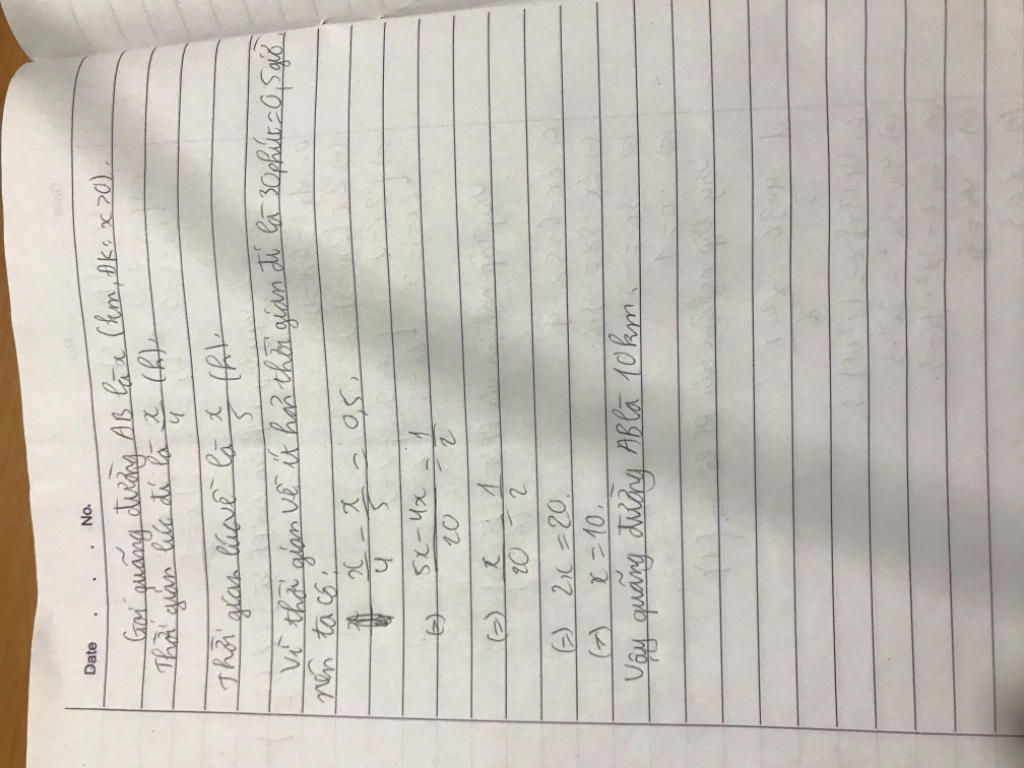 Date . . . No.
Gọi quãng đường AB là x (km, ĐK: x>0).
Thời gian lúc đi là x/4 (h).
Thời gian lúc về là x/5 (h).
Vì thời gian về ít hơn thời gian đi là 30 phút = 0,5 giờ
nên ta có:
x/4 - x/5 = 0,5.
(=) 5x - 4x / 20 = 1/2
(=) x/20 = 1/2
(=) 2x = 20.
(=) x = 10.
Vậy quãng đường AB là 10 km.